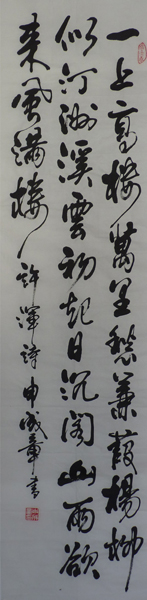 一上高楼萬里愁蒹葭楊柳
似汀洲溪雲初起日沉阁山雨欲
来風满楼許渾詩申成章書